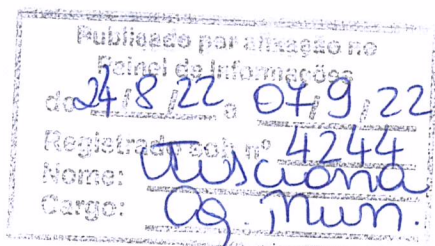 Publicado por afixação no
Painel de Informações
de 24/8/22 a 07/9/22
Registrado sob nº 4244
Nome:
Cargo: Ag. Mun.